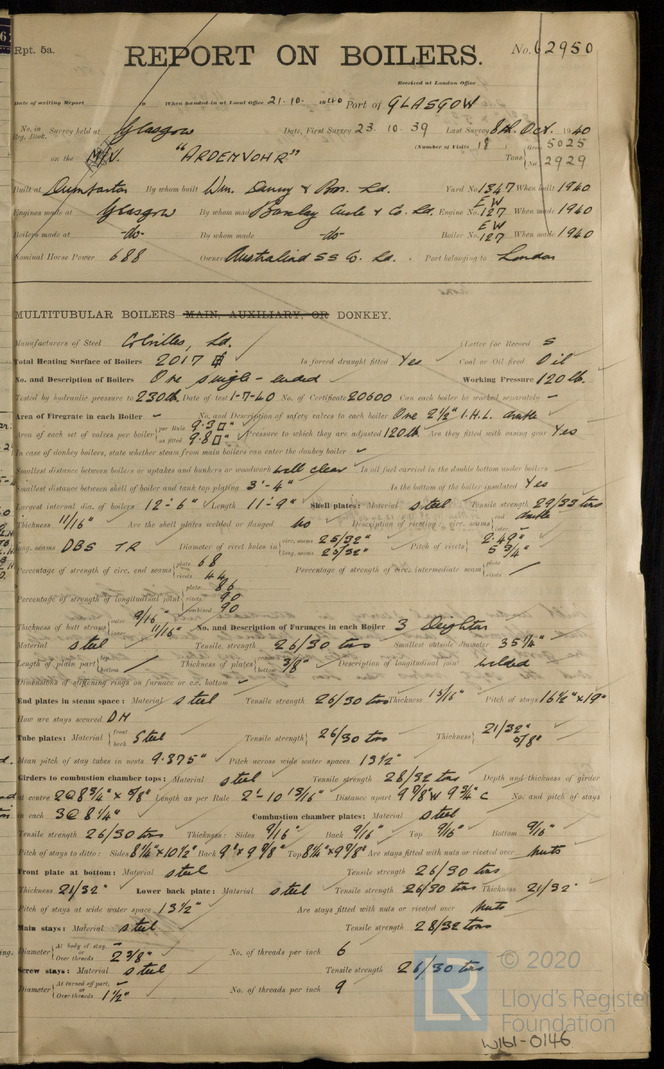 Rpt. 5a.
REPORT ON BOILERS.
No. 62950
Received at London Office
Date of writing Report to When handed in at Local Office 21.10.1940 Port of GLASGOW
No. in Reg. Book. Survey held at Glasgow Date, First Survey 23.10.39 Last Survey 8th Oct. 1940
(Number of Visits
on the M/V. "ARDENVOHR" Tons Gross 5025 Net 2929
Built at Dumbarton By whom built Wm. Denny & Bros. Ld. Yard No. 1347 When built 1940
Engines made at Glasgow By whom made Barclay Curle & Co. Ld. Engine No. EW 127 When made 1940
Boilers made at -do- By whom made -do- Boiler No. EW 127 When made 1940
Nominal Horse Power 688 Owners Australind SS Co. Ld. Port belonging to London
MULTITUBULAR BOILERS MAIN, AUXILIARY, OR DONKEY.
Manufacturers of Steel Colvilles, Ld. (Letter for Record S
Total Heating Surface of Boilers 2017 Is forced draught fitted Yes Coal or Oil fired Oil
No. and Description of Boilers One single-ended Working Pressure 120 lb.
Tested by hydraulic pressure to 230 lb. Date of test 1-7-40 No. of Certificate 20600 Can each boiler be worked separately –
Area of Firegrate in each Boiler – No. and Description of safety valves to each boiler One 2½" I.H.L. double
Area of each set of valves per boiler per Rule 9.30 □" as fitted 9.80 □" Pressure to which they are adjusted 120 lb Are they fitted with easing gear Yes
In case of donkey boilers, state whether steam from main boilers can enter the donkey boiler –
Smallest distance between boilers or uptakes and bunkers or woodwork well clear Is oil fuel carried in the double bottom under boilers –
Smallest distance between shell of boiler and tank top plating 3'-4" Is the bottom of the boiler insulated Yes
Largest internal dia. of boilers 12'-6" Length 11'-9" Shell plates: Material steel Tensile strength 29/33 tons
Thickness 11/16" Are the shell plates welded or flanged No Description of riveting: circ. seams end double
long. seams DBS TR Diameter of rivet holes in circ. seams 25/32" long. seams 25/32" Pitch of rivets 2.49" 5 3/4"
Percentage of strength of circ. end seams plate 68 rivets 44 Percentage of strength of circ. intermediate seam plate rivets
Percentage of strength of longitudinal joint plate 86 rivets 90 combined 90
Thickness of butt straps outer 9/16" inner 11/16" No. and Description of Furnaces in each Boiler 3 Deighton
Material steel Tensile strength 26/30 tons Smallest outside diameter 35 1/4"
Length of plain part top bottom Thickness of plates crown bottom 3/8" Description of longitudinal joint welded
Dimensions of stiffening rings on furnace or c.c. bottom –
End plates in steam space: Material steel Tensile strength 26/30 tons Thickness 13/16" Pitch of stays 16½" x 19"
How are stays secured DN
Tube plates: Material front back Steel Tensile strength 26/30 tons Thickness 21/32" 5/8"
Mean pitch of stay tubes in nests 9.375" Pitch across wide water spaces 13½"
Girders to combustion chamber tops: Material steel Tensile strength 28/32 tons Depth and thickness of girder
at centre 2@8 3/4" x 5/8" Length as per Rule 2'-10 13/16" Distance apart 9 7/8" W 9 3/4" C No. and pitch of stays
in each 3@8 1/4" Combustion chamber plates: Material steel
Tensile strength 26/30 tons Thickness: Sides 9/16" Back 9/16" Top 9/16" Bottom 9/16"
Pitch of stays to ditto: Sides 8 1/4" x 10 1/2" Back 9" x 9 7/8" Top 8 1/4" x 9 7/8" Are stays fitted with nuts or riveted over nuts
Front plate at bottom: Material steel Tensile strength 26/30 tons
Thickness 21/32" Lower back plate: Material steel Tensile strength 26/30 tons Thickness 21/32"
Pitch of stays at wide water space 13½" Are stays fitted with nuts or riveted over Nuts
Main stays: Material steel Tensile strength 28/32 tons
Diameter At body of stay, – or Over threads 2 3/8" No. of threads per inch 6
Screw stays: Material steel Tensile strength 26/30 tons
Diameter At turned off part, – or Over threads 1½" No. of threads per inch 9
© 2020
LR Lloyd's Register
Foundation
W161-0146